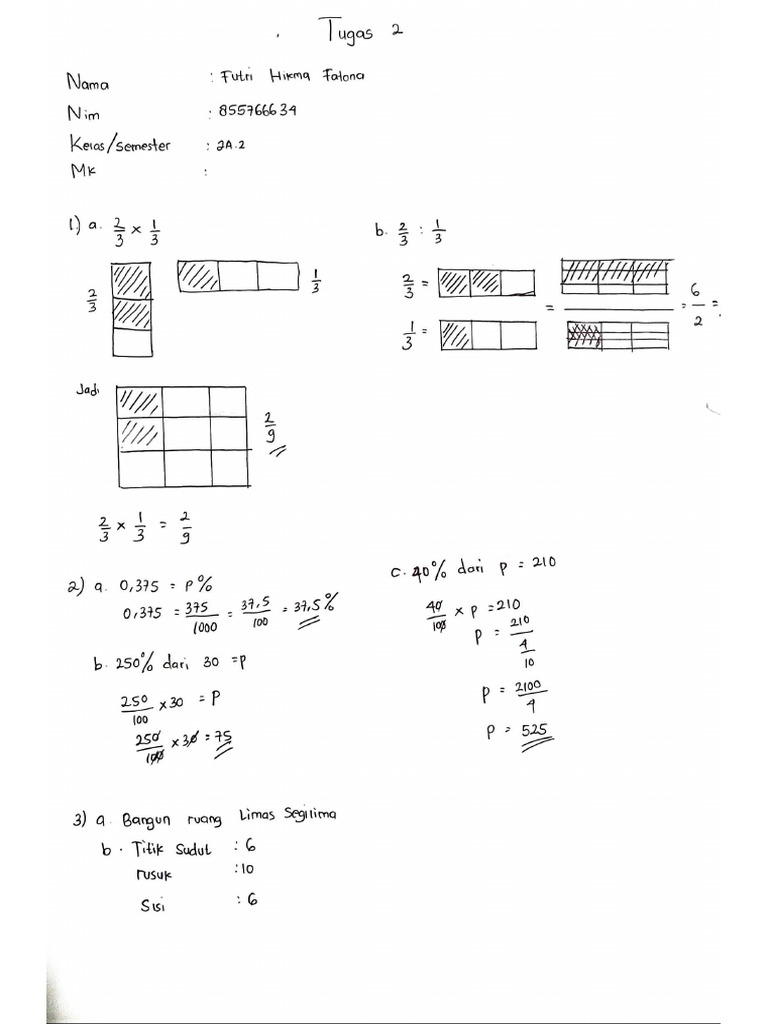 Tugas 2
Nama : Futri Hikma Fatona
Nim : 855766634
Kelas/Semester : 2A.2
Mk :
1) a. 2/3 x 1/3
2/3
1/3
Jadi
2/9
2/3 x 1/3 = 2/9
b. 2/3 : 1/3
2/3 =
1/3 =
= = 6/2 =
2) a. 0,375 = P%
0,375 = 375/1000 = 37,5/100 = 37,5%
b. 250% dari 30 = p
250/100 x 30 = P
250/100 x 30 = 75
c. 40% dari p = 210
40/100 x p = 210
p = 210/4/10
p = 2100/4
p = 525
3) a. Bangun ruang Limas Segilima
b. Titik Sudut : 6
rusuk : 10
Sisi : 6